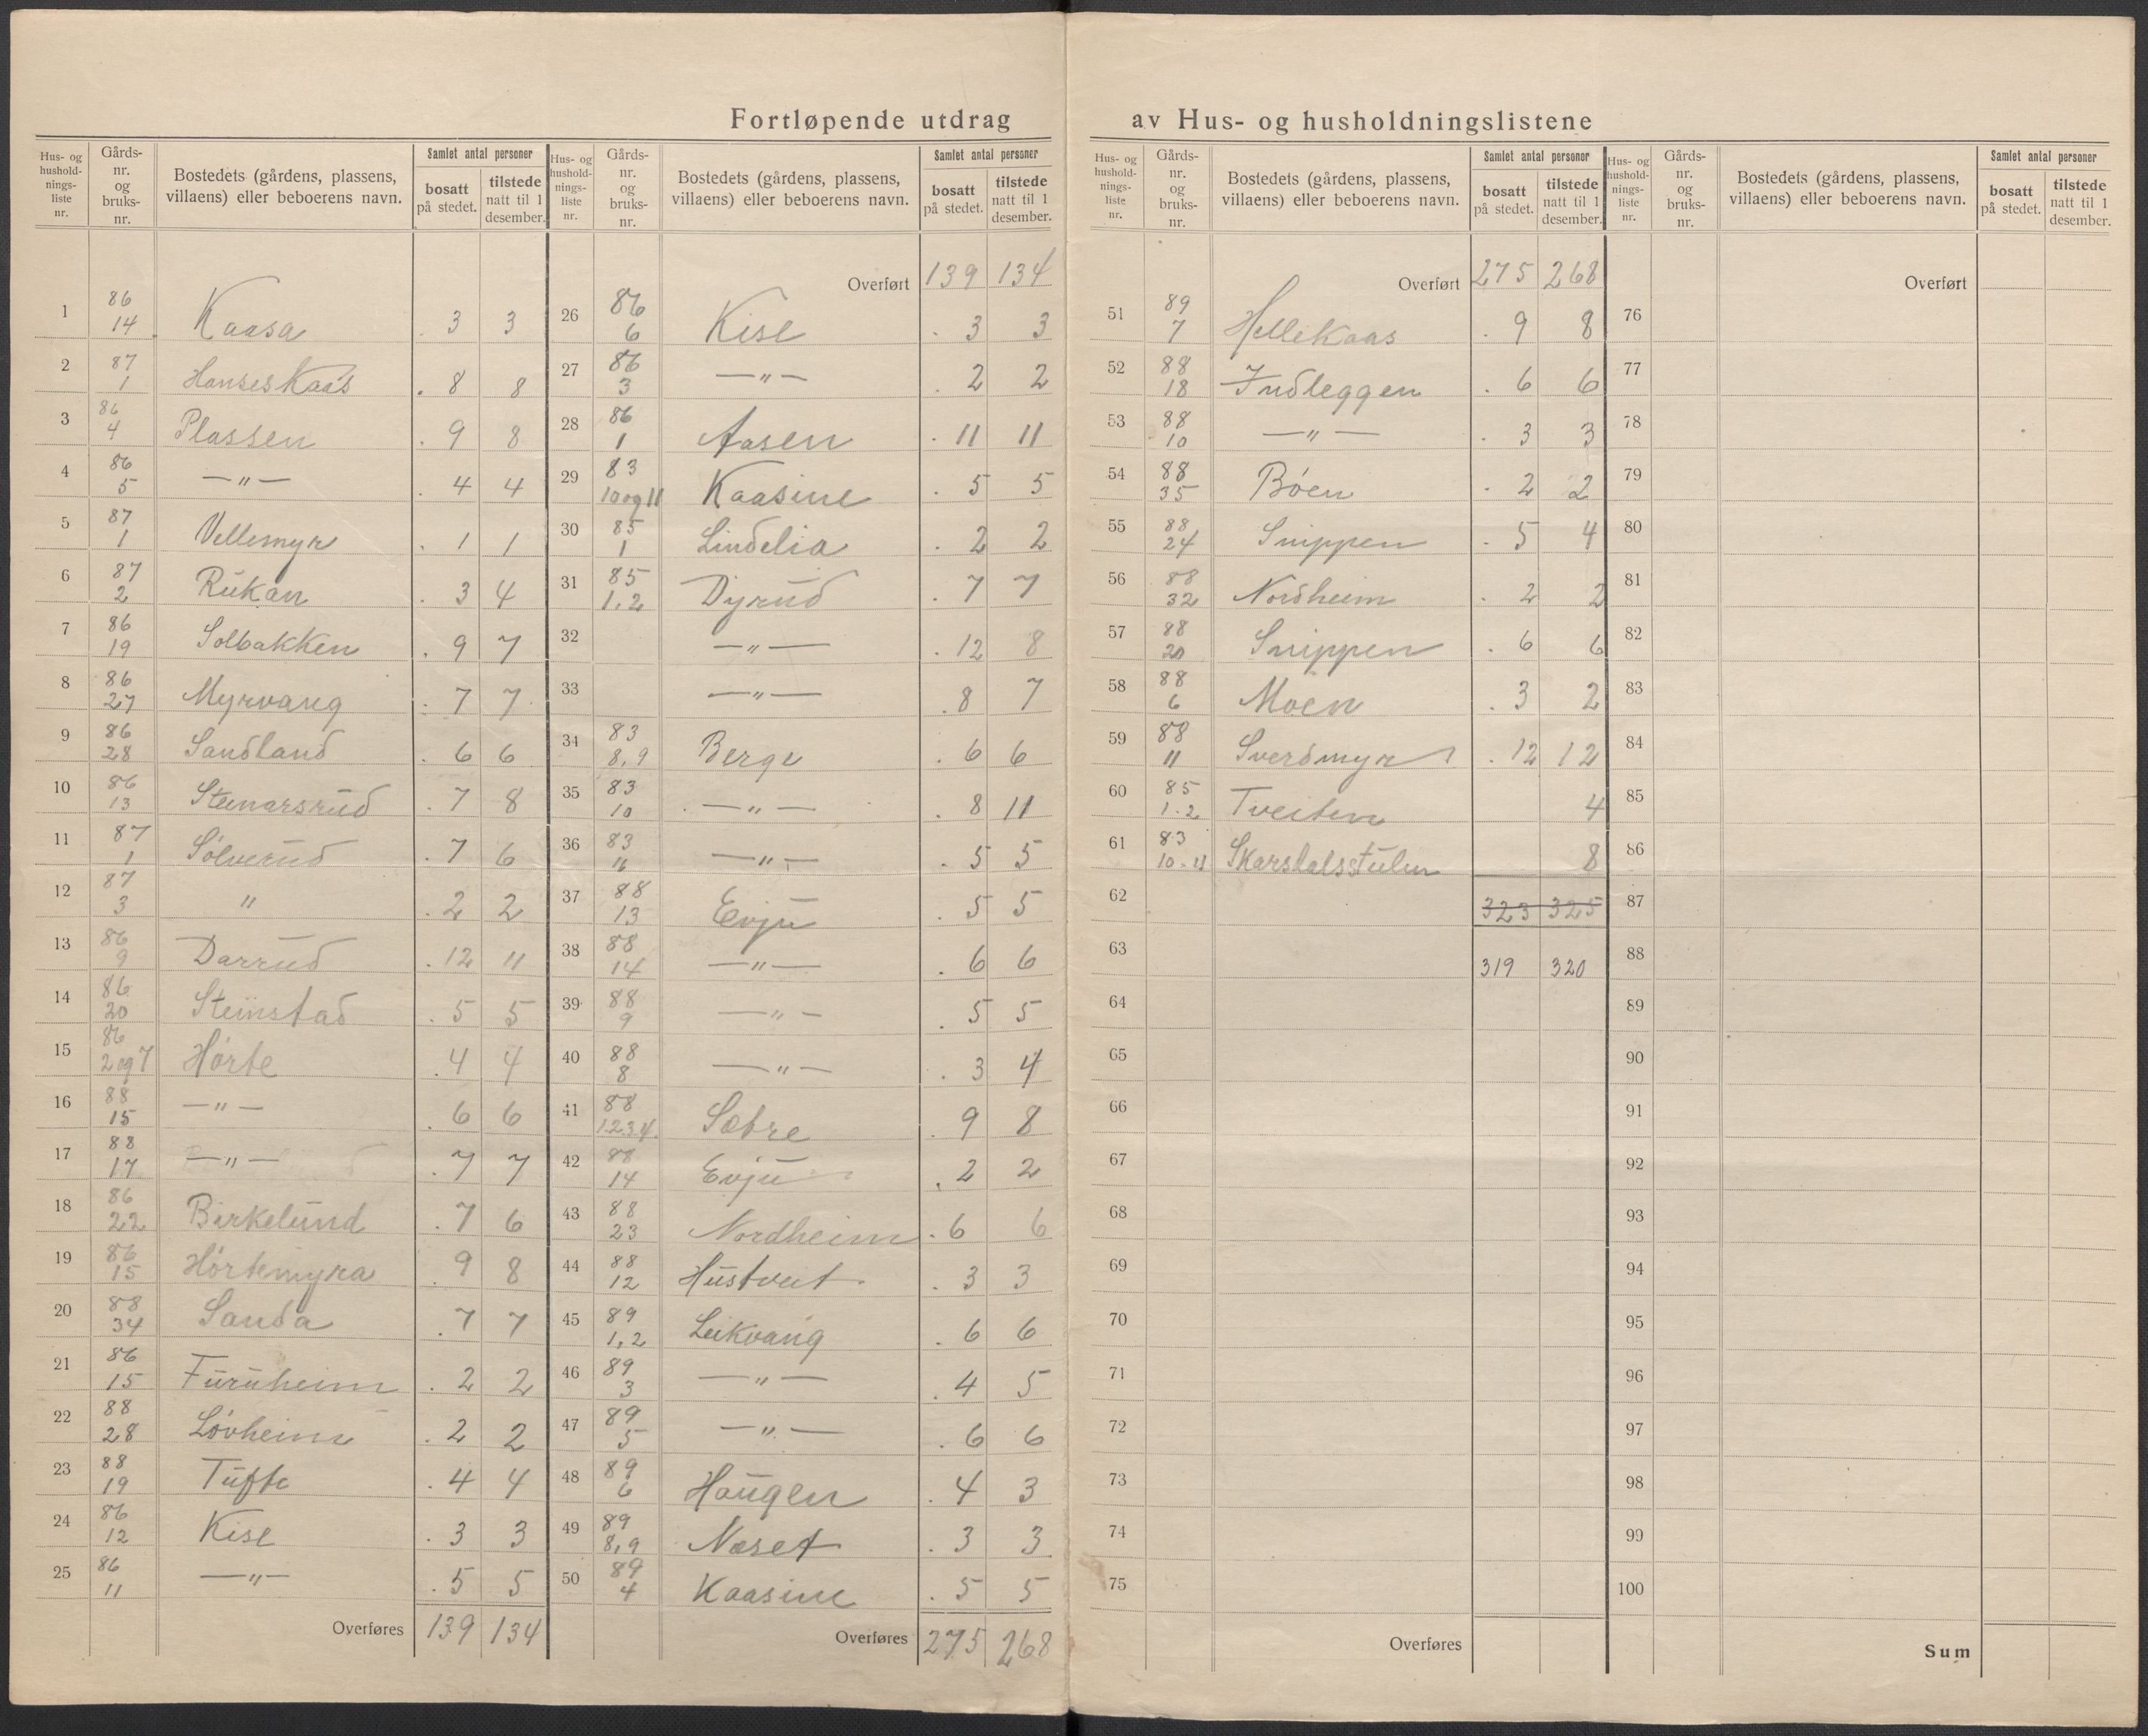 Fortløpende utdrag av Hus- og husholdningslistene
Hus- og husholdnings-liste nr. | Gårds-nr. og bruks-nr. | Bostedets (gårdens, plassens, villaens) eller beboerens navn. | Samlet antal personer | bosatt på stedet. | tilstede natt til 1 desember.
1 | 86 14 | Kaasa | 3 | 3
2 | 87 1 | Hanseskaas | 8 | 8
3 | 86 4 | Plassen | 9 | 8
4 | 86 5 | —"— | 4 | 4
5 | 87 1 | Vellemyr | 1 | 1
6 | 87 2 | Rukan | 3 | 4
7 | 86 19 | Solbakken | 9 | 7
8 | 86 27 | Myrvang | 7 | 7
9 | 86 28 | Sandland | 6 | 6
10 | 86 13 | Steinarsrud | 7 | 8
11 | 87 1 | Sølverud | 7 | 6
12 | 87 3 | " | 2 | 2
13 | 86 9 | Darrud | 12 | 11
14 | 86 20 | Steinstad | 5 | 5
15 | 86 2 og 7 | Hørte | 4 | 4
16 | 88 15 | —"— | 6 | 6
17 | 88 17 | —"— | 7 | 7
18 | 86 22 | Birkelund | 7 | 6
19 | 86 15 | Hørtemyra | 9 | 8
20 | 88 34 | Sanda | 7 | 7
21 | 86 15 | Furuheim | 2 | 2
22 | 88 28 | Løvheim | 2 | 2
23 | 88 19 | Tufte | 4 | 4
24 | 86 12 | Kise | 3 | 3
25 | 86 11 | —"— | 5 | 5
Overføres | 139 | 134
Hus- og husholdnings-liste nr. | Gårds-nr. og bruks-nr. | Bostedets (gårdens, plassens, villaens) eller beboerens navn. | Samlet antal personer | bosatt på stedet. | tilstede natt til 1 desember.
Overført | 139 | 134
26 | 86 6 | Kise | 3 | 3
27 | 86 3 | —"— | 2 | 2
28 | 86 1 | Aasen | 11 | 11
29 | 83 10 og 11 | Kaasine | 5 | 5
30 | 85 1 | Lindelia | 2 | 2
31 | 85 1,2 | Dyrud | 7 | 7
32 | —"— | 12 | 8
33 | —"— | 8 | 7
34 | 83 8,9 | Berge | 6 | 6
35 | 83 10 | —"— | 8 | 11
36 | 83 | —"— | 5 | 5
37 | 88 13 | Evju | 5 | 5
38 | 88 14 | —"— | 6 | 6
39 | 88 9 | —"— | 5 | 5
40 | 88 8 | —"— | 3 | 4
41 | 88 1.2.3.4. | Sæbre | 9 | 8
42 | 88 14 | Evju | 2 | 2
43 | 88 23 | Nordheim | 6 | 6
44 | 88 12 | Hustveit | 3 | 3
45 | 89 1,2 | Leikvang | 6 | 6
46 | 89 3 | —"— | 4 | 5
47 | 89 5 | —"— | 6 | 6
48 | 89 6 | Haugen | 4 | 3
49 | 89 8,9 | Næset | 3 | 3
50 | 89 4 | Kaasine | 5 | 5
Overføres | 275 | 268
Hus- og husholdnings-liste nr. | Gårds-nr. og bruks-nr. | Bostedets (gårdens, plassens, villaens) eller beboerens navn. | Samlet antal personer | bosatt på stedet. | tilstede natt til 1 desember.
Overført | 275 | 268
51 | 89 7 | Hellekaas | 9 | 8
52 | 88 18 | Indleggen | 6 | 6
53 | 88 10 | —"— | 3 | 3
54 | 88 35 | Bøen | 2 | 2
55 | 88 24 | Snippen | 5 | 4
56 | 88 32 | Nordheim | 2 | 2
57 | 88 20 | Snippen | 6 | 6
58 | 88 6 | Moen | 3 | 2
59 | 88 11 | Sverdmyr | 12 | 12
60 | 85 1-2 | Tveiten | 4
61 | 83 10-11 | Skarsdalsstulen | 8
62 | 323 | 325
63 | 319 | 320
64
65
66
67
68
69
70
71
72
73
74
75
Overføres
Hus- og husholdnings-liste nr. | Gårds-nr. og bruks-nr. | Bostedets (gårdens, plassens, villaens) eller beboerens navn. | Samlet antal personer | bosatt på stedet. | tilstede natt til 1 desember.
Overført
76
77
78
79
80
81
82
83
84
85
86
87
88
89
90
91
92
93
94
95
96
97
98
99
100
Sum